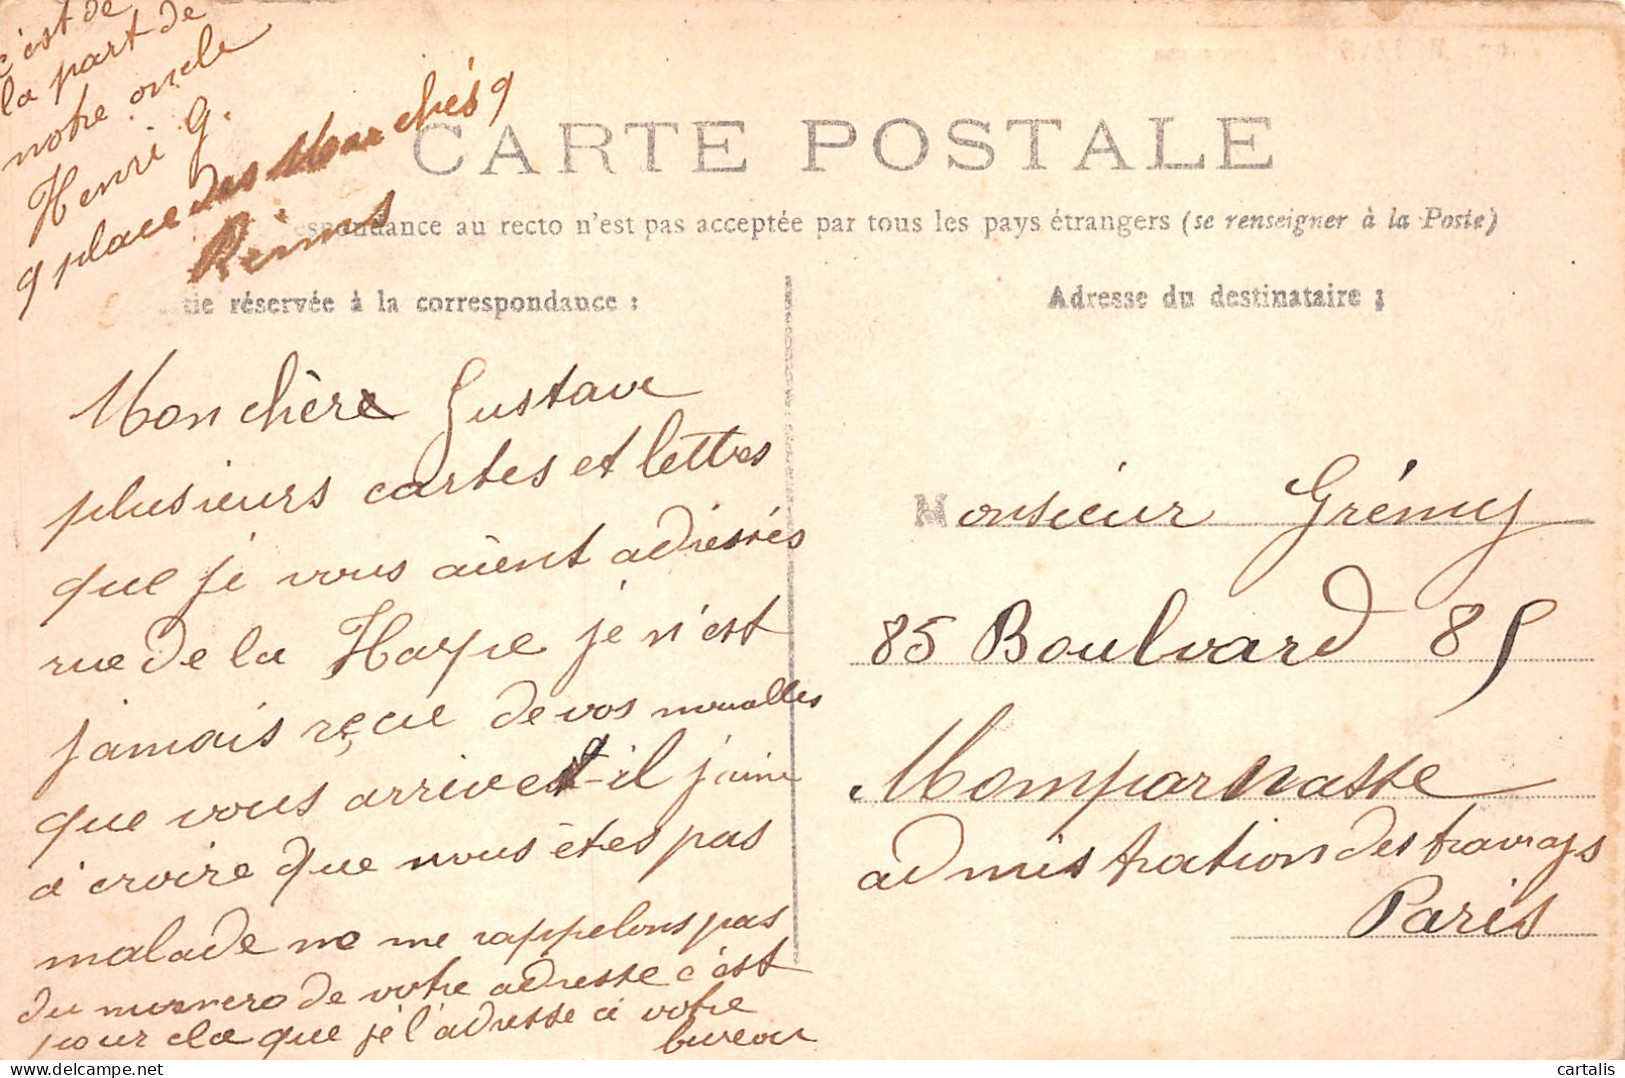 c'est de
la part de
notre oncle
Henri G.
9 place des Marchés 9
Reims
CARTE POSTALE
espondance au recto n'est pas acceptée par tous les pays étrangers (se renseigner à la Poste)
tie réservée à la correspondance :
Mon chère Gustave
plusieurs cartes et lettres
que je vous aient adressés
rue de la Harpe je n'est
jamais reçue de vos nouvalles
que vous arrivet-il j'aime
à croire que vous êtes pas
malade ne me rappelons pas
du numero de votre adresse c'est
pour cla que jé l'adresse à votre
bureau
Adresse du destinataire :
Monsieur Grémy
85 Boulvard 85
Momparnasse
admistration des travays
Paris
cartalis